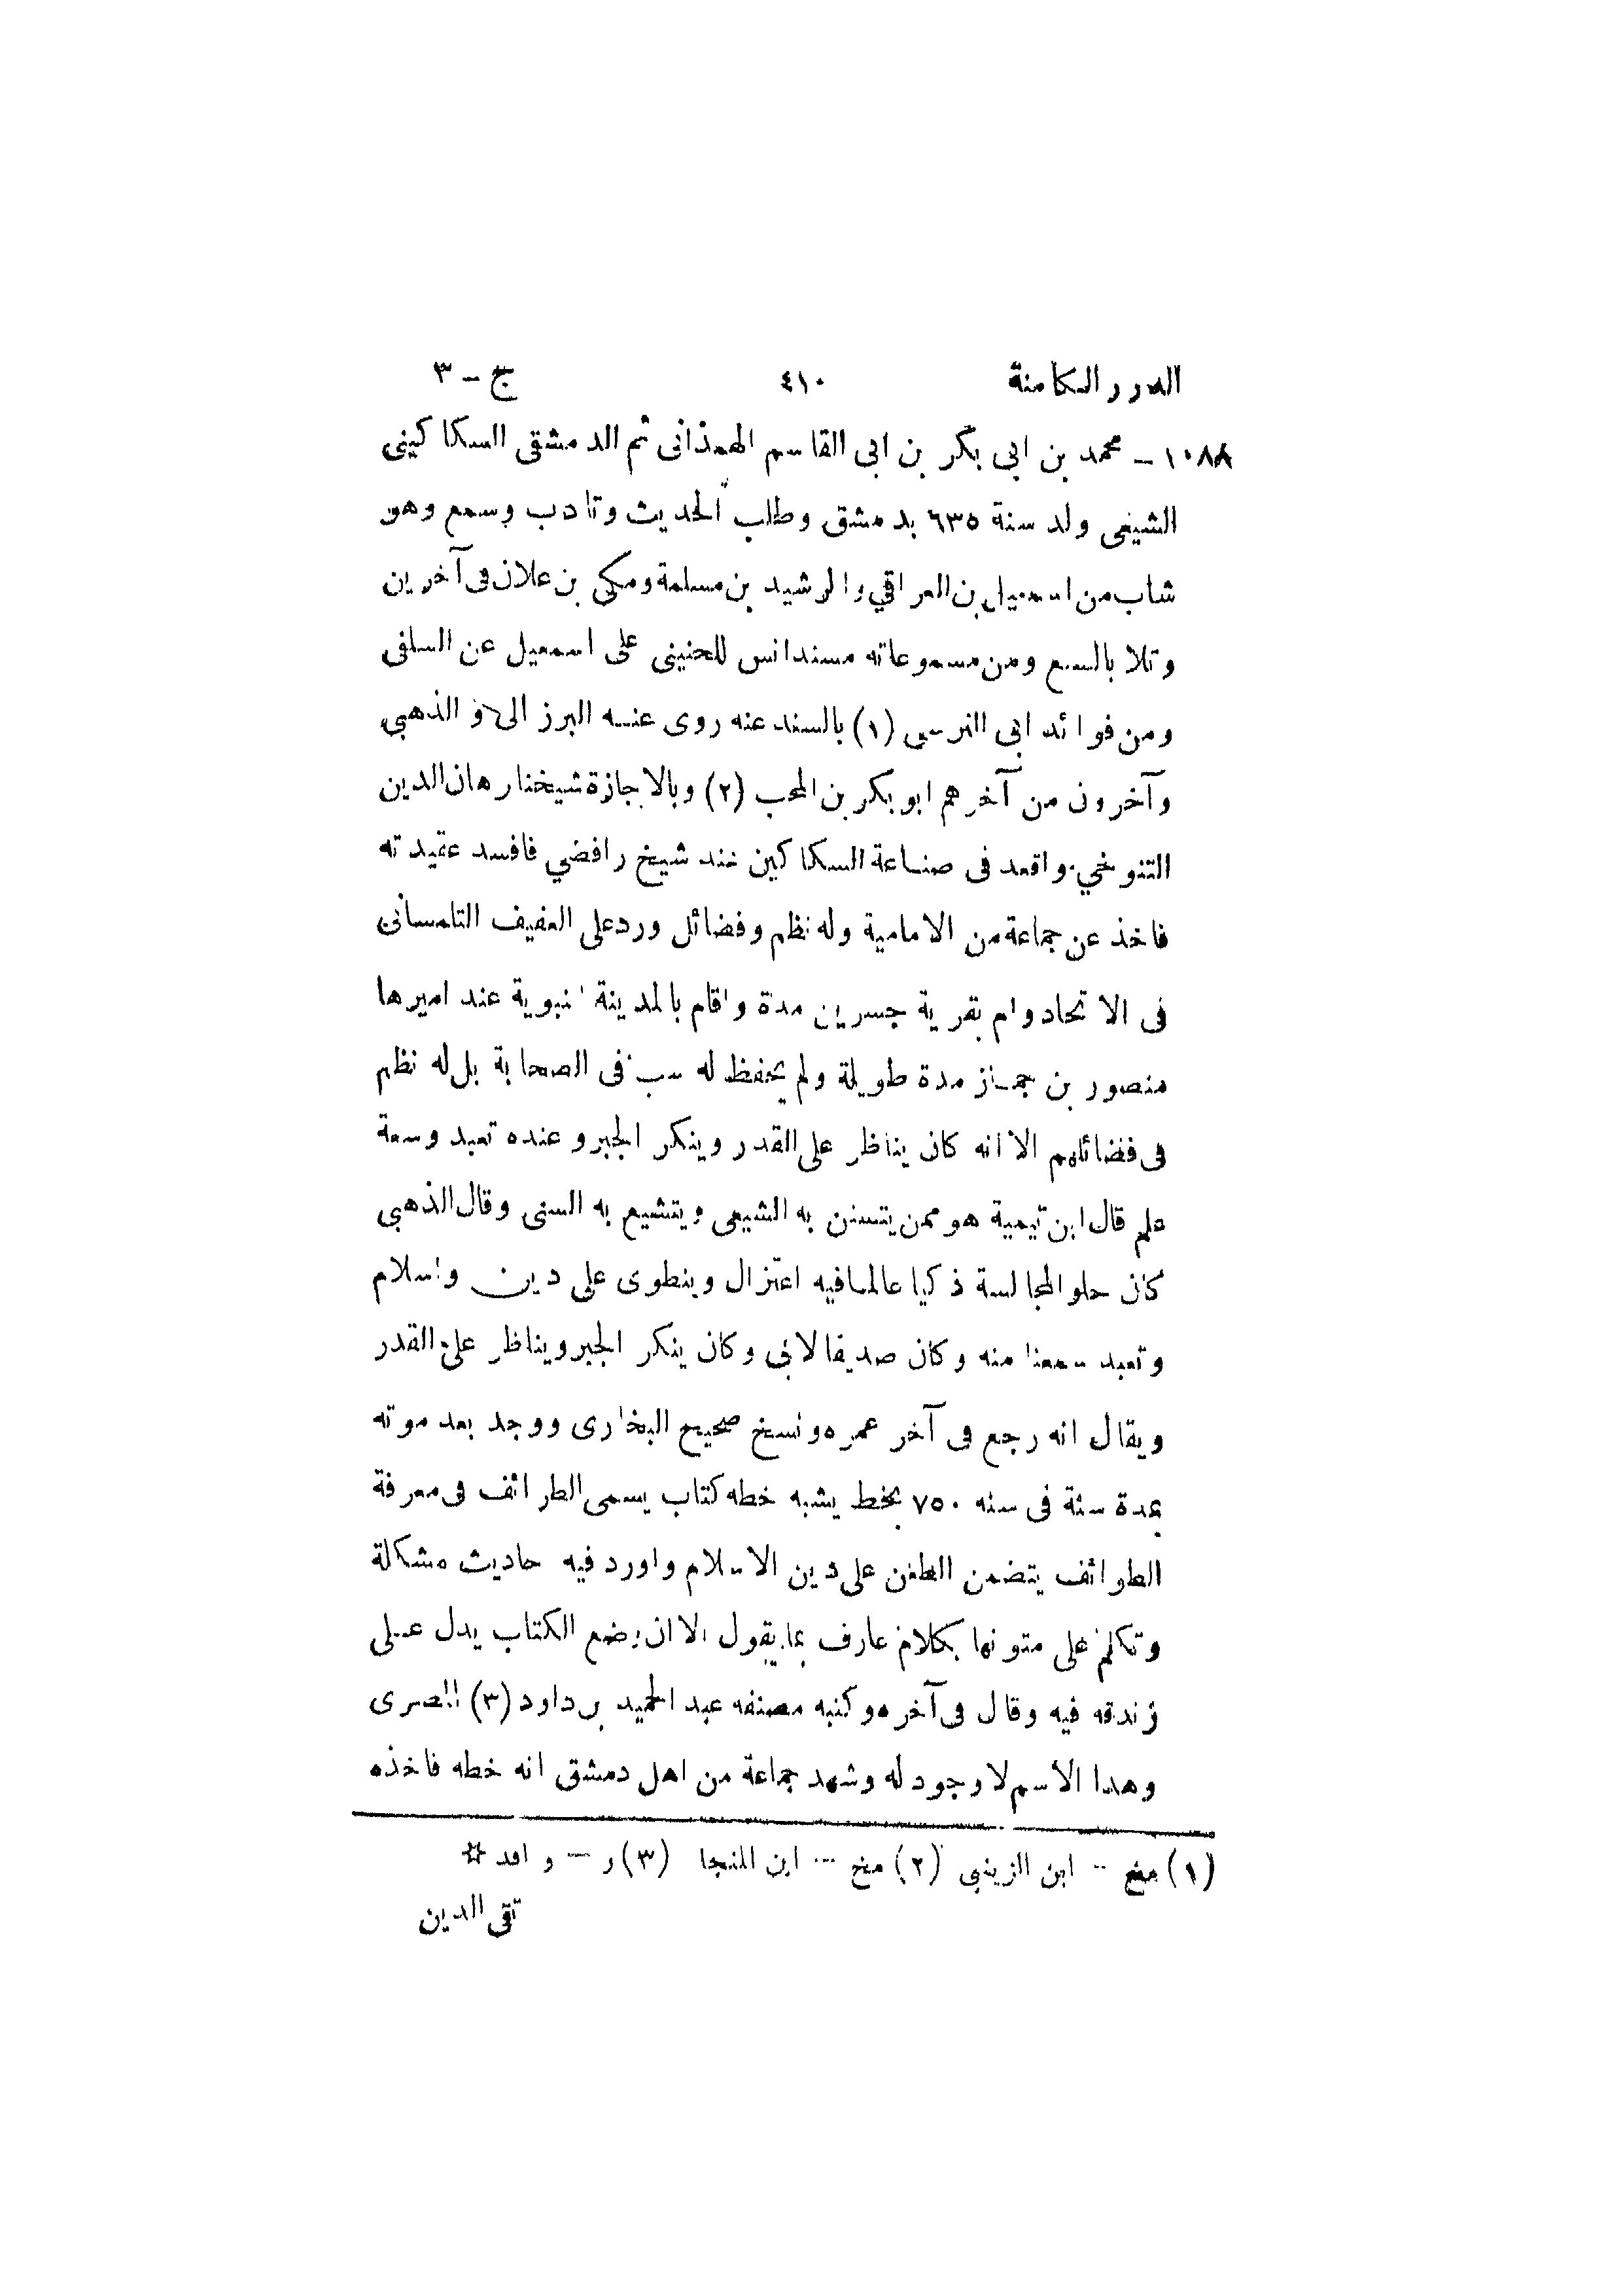 الدرر الكامنة ٤١٠ ج – ٣
١٠٨٨ – محمد بن ابى بكر بن ابى القاسم الهمذانى ثم الدمشقى السكاكينى
الشيعى ولد سنة ٦٣٥ بدمشق وطلب الحديث وتادب وسمع وهو
شاب من اسمعيل بن العراقي والرشيد بن مسلمة ومكى بن علان فى آخرين
وتلا بالسبع ومن مسموعاته مسند انس للحنينى على اسمعيل عن السلفى
ومن فوائد ابى النرسى (١) بالسند عنه روى عنه البرزالى و الذهبى
وآخرون من آخرهم ابو بكر بن المحب (٢) وبالاجازة شيخنا برهان الدين
التنوخي واقعد فى صناعة السكاكين عند شيخ رافضي فافسد عقيدته
فاخذ عن جماعة من الامامية وله نظم وفضائل ورد على العفيف التلمسانى
فى الاتحاد وام بقرية جسرين مدة واقام بالمدينة النبوية عند اميرها
منصور بن جماز مدة طويلة ولم يحفظ له سب فى الصحابة بل له نظم
فى فضائلهم الا انه كان يناظر على القدر وينكر الجبر وعنده تعبد وسعة
علم قال ابن تيمية هو ممن يتسنن به الشيعى ويتشيع به السنى وقال الذهبى
كان حلو المجالسة ذكيا عالما فيه اعتزال وينطوى على دين واسلام
وتعبد سمعنا منه وكان صديقا لابى وكان ينكر الجبر ويناظر على القدر
ويقال انه رجع فى آخر عمره ونسخ صحيح البخارى ووجد بعد موته
بمدة سنة فى سنه ٧٥٠ بخط يشبه خطه كتاب يسمى الطرائف فى معرفة
الطوائف يتضمن الطعن على دين الاسلام واورد فيه احاديث مشكلة
وتكلم على متونها بكلام عارف بما يقول الا ان وضع الكتاب يدل على
زندقه فيه وقال فى آخره وكتبه مصنفه عبد الحميد بن داود (٣) المصرى
وهذا الاسم لا وجود له وشهد جماعة من اهل دمشق انه خطه فاخذه
(١) مخ – ابن الزينبى (٢) مخ – ابن المنجا (٣) ر – و افد *
تقى الدين